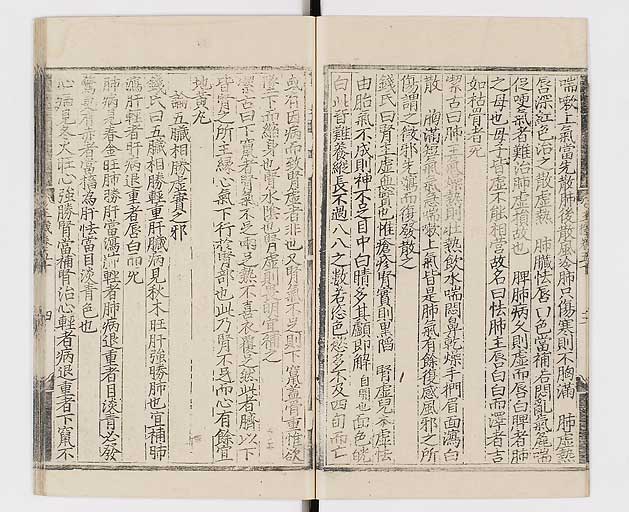 喘嗽上氣當先散肺後散風冷肺只傷寒則不胸滿　肺虛熱
唇深紅色治之散虛熱　肺臟怯唇白色當補若悶亂氣麄喘
促哽氣者難治肺虛損故也　脾肺病久則虛而唇白脾者肺
之母也母子皆虛不能相營故名曰怯肺主唇白白而澤者吉
如枯骨者死
潔古曰肺主燥則壯熱飲水喘悶鼻乾燥手捫眉面瀉白
散　胸滿短氣氣急喘嗽上氣皆是肺氣有餘復感風邪之所
傷謂之微邪先瀉而復發散之
錢氏曰腎主虛無實也惟瘡疹腎實則黑陷　腎虛兒本虛怯
由胎氣不成則神不足目中白睛多其顱即解面色㿠
白此皆難養縱長不過八八之數若恣色慾多不及四旬而亡
或有因病而致腎虛者非也又腎氣不足則下竄蓋骨重惟欲
墜下而縮身也腎水陰也腎虛則畏明宜補之
潔古曰下竄者腎氣不足兩足熱不喜衣覆足熱此者臍以下
皆腎之所主緣心氣下行於腎部也此乃腎不足而心有餘宜
地黃丸
論五臟相勝虛實之邪
錢氏曰五臟相勝輕重肝臟病見秋木旺肝強勝肺也宜補肺
瀉肝輕者肝病退重者唇白而死
肺病見春金旺肺勝肝當瀉肺輕者肺病退重者目淡青必發
驚更有赤者當搐為肝怯當目淡青色也
心病見冬火旺心強勝腎當補腎治心輕者病退重者下竄不